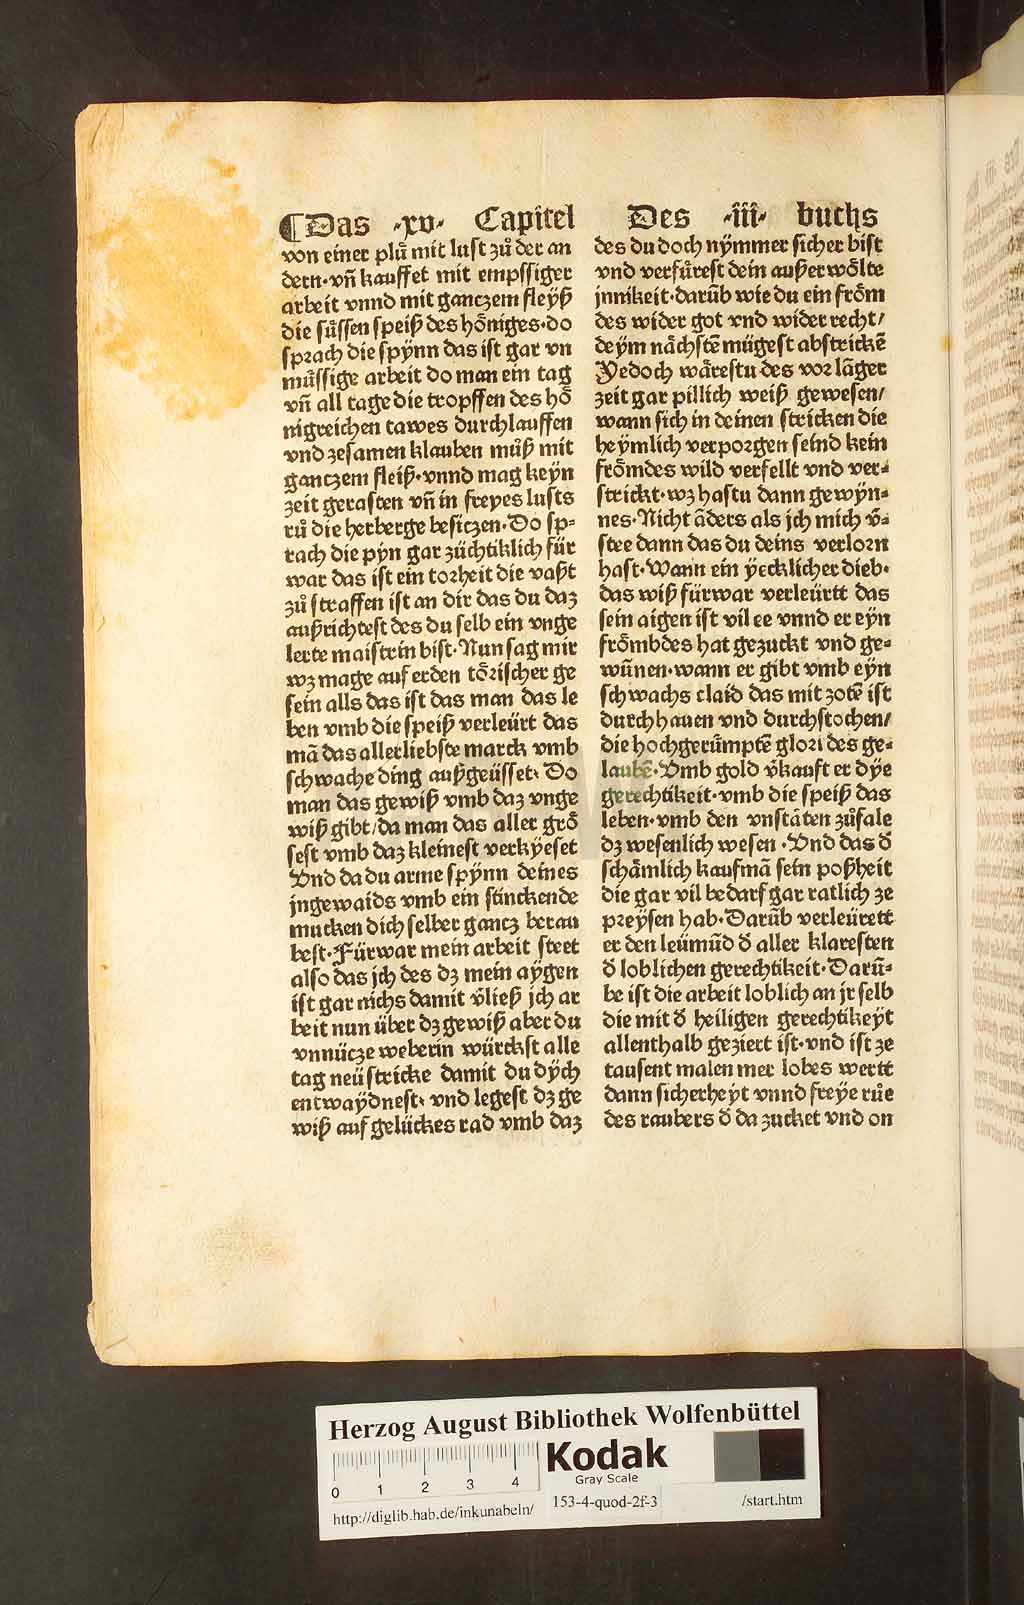 ¶Das ·xv· Capitel Des ·iii· buchs
von einer plů mit lust zů der an
dern·vñ kauffet mit empssiger
arbeit vnnd mit ganczem fleyß
die sůssen speiß des hôniges·do
sprach die spÿnn das ist gar vn
můssige arbeit do man ein tag
vñ all tage die tropffen des hô
nigreichen tawes durchlauffen
vnd zesamen klauben můß mit
ganczem fleiß·vnnd mag keÿn
zeit gerasten vñ in freyes lusts
rů die herberge besiczen·Do sp=
rach die pÿn gar züchtiklich für
war das ist ein torheit die vaßt
zů straffen ist an dir das du daz
außrichtest des du selb ein vnge
lerte maistrin bist·Nun sag mir
wz mage auf erden tôrischer ge
sein alls das ist das man das le
ben vmb die speiß verleürt das
mã das allerliebste marck vmb
schwache ding außgeüsset· Do
man das gewiß vmb daz vnge
wiß gibt/da man das aller grô
sest vmb daz kleinest verkÿeset
Vnd da du arme spÿnn deines
jngewaids vmb ein stinckende
mucken dich selber gancz berau
best·Fürwar mein arbeit steet
also das jch des dz mein aÿgen
ist gar nichs damit v̄ließ jch ar
beit nun über dz gewiß aber du
vnnücze weberin würckst alle
tag neü stricke damit du dÿch
entwaÿdnest· vnd legest dz ge
wiß auf gelückes rad vmb daz
des du doch nÿmmer sicher bist
vnd verfůrest dein außerwôlte
jnnikeit·darũb wie du ein frôm
des wider got vnd wider recht/
deÿm nåchstẽ mügest abstrickẽ
Yedoch wårestu des vor lãger
zeit gar pillich weiß gewesen/
wann sich in deinen stricken die
heÿmlich verporgen seind kein
frômdes wild verfellt vnd ver=
strickt·wz hastu dann gewÿn=
nes·Nicht ãders als jch mich v̄=
stee dann das du deins verlorn
hast·Wann ein ÿecklicher dieb·
das wiß fürwar verleürtt das
sein aigen ist vil ee vnnd er eÿn
frômbdes hat gezuckt vnd ge=
wũnen·wann er gibt vmb eÿn
schwachs claid das mit zotẽ ist
durchhauen vnd durchstochen/
die hochgerůmptẽ glori des ge=
laubẽ·Vmb gold v̄kauft er dÿe
gerechtikeit·vmb die speiß das
leben·vmb den vnståten zůfale
dz wesenlich wesen ·Vnd das d̄
schåmlich kaufmã sein poßheit
die gar vil bedarf gar ratlich ze
preÿsen hab·Darũb verleürett
er den leümũd d̄ aller klaresten
d̄ loblichen gerechtikeit·Darũ=
be ist die arbeit loblich an jr selb
die mit d̄ heiligen gerechtikeÿt
allenthalb geziert ist·vnd ist ze
tausent malen mer lobes wertt
dann sicherheÿt vnnd freÿe růe
des raubers d̄ da zucket vnd on
Herzog August Bibliothek Wolfenbüttel
Kodak
Gray Scale
0 1 2 3 4
153-4-quod-2f-3
http://diglib.hab.de/inkunabeln/ /start.htm